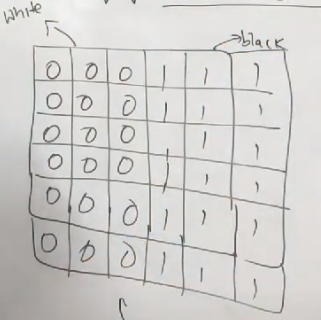 white
black
0 0 0 1 1 1
0 0 0 1 1 1
0 0 0 1 1 1
0 0 0 1 1 1
0 0 0 1 1 1
0 0 0 1 1 1